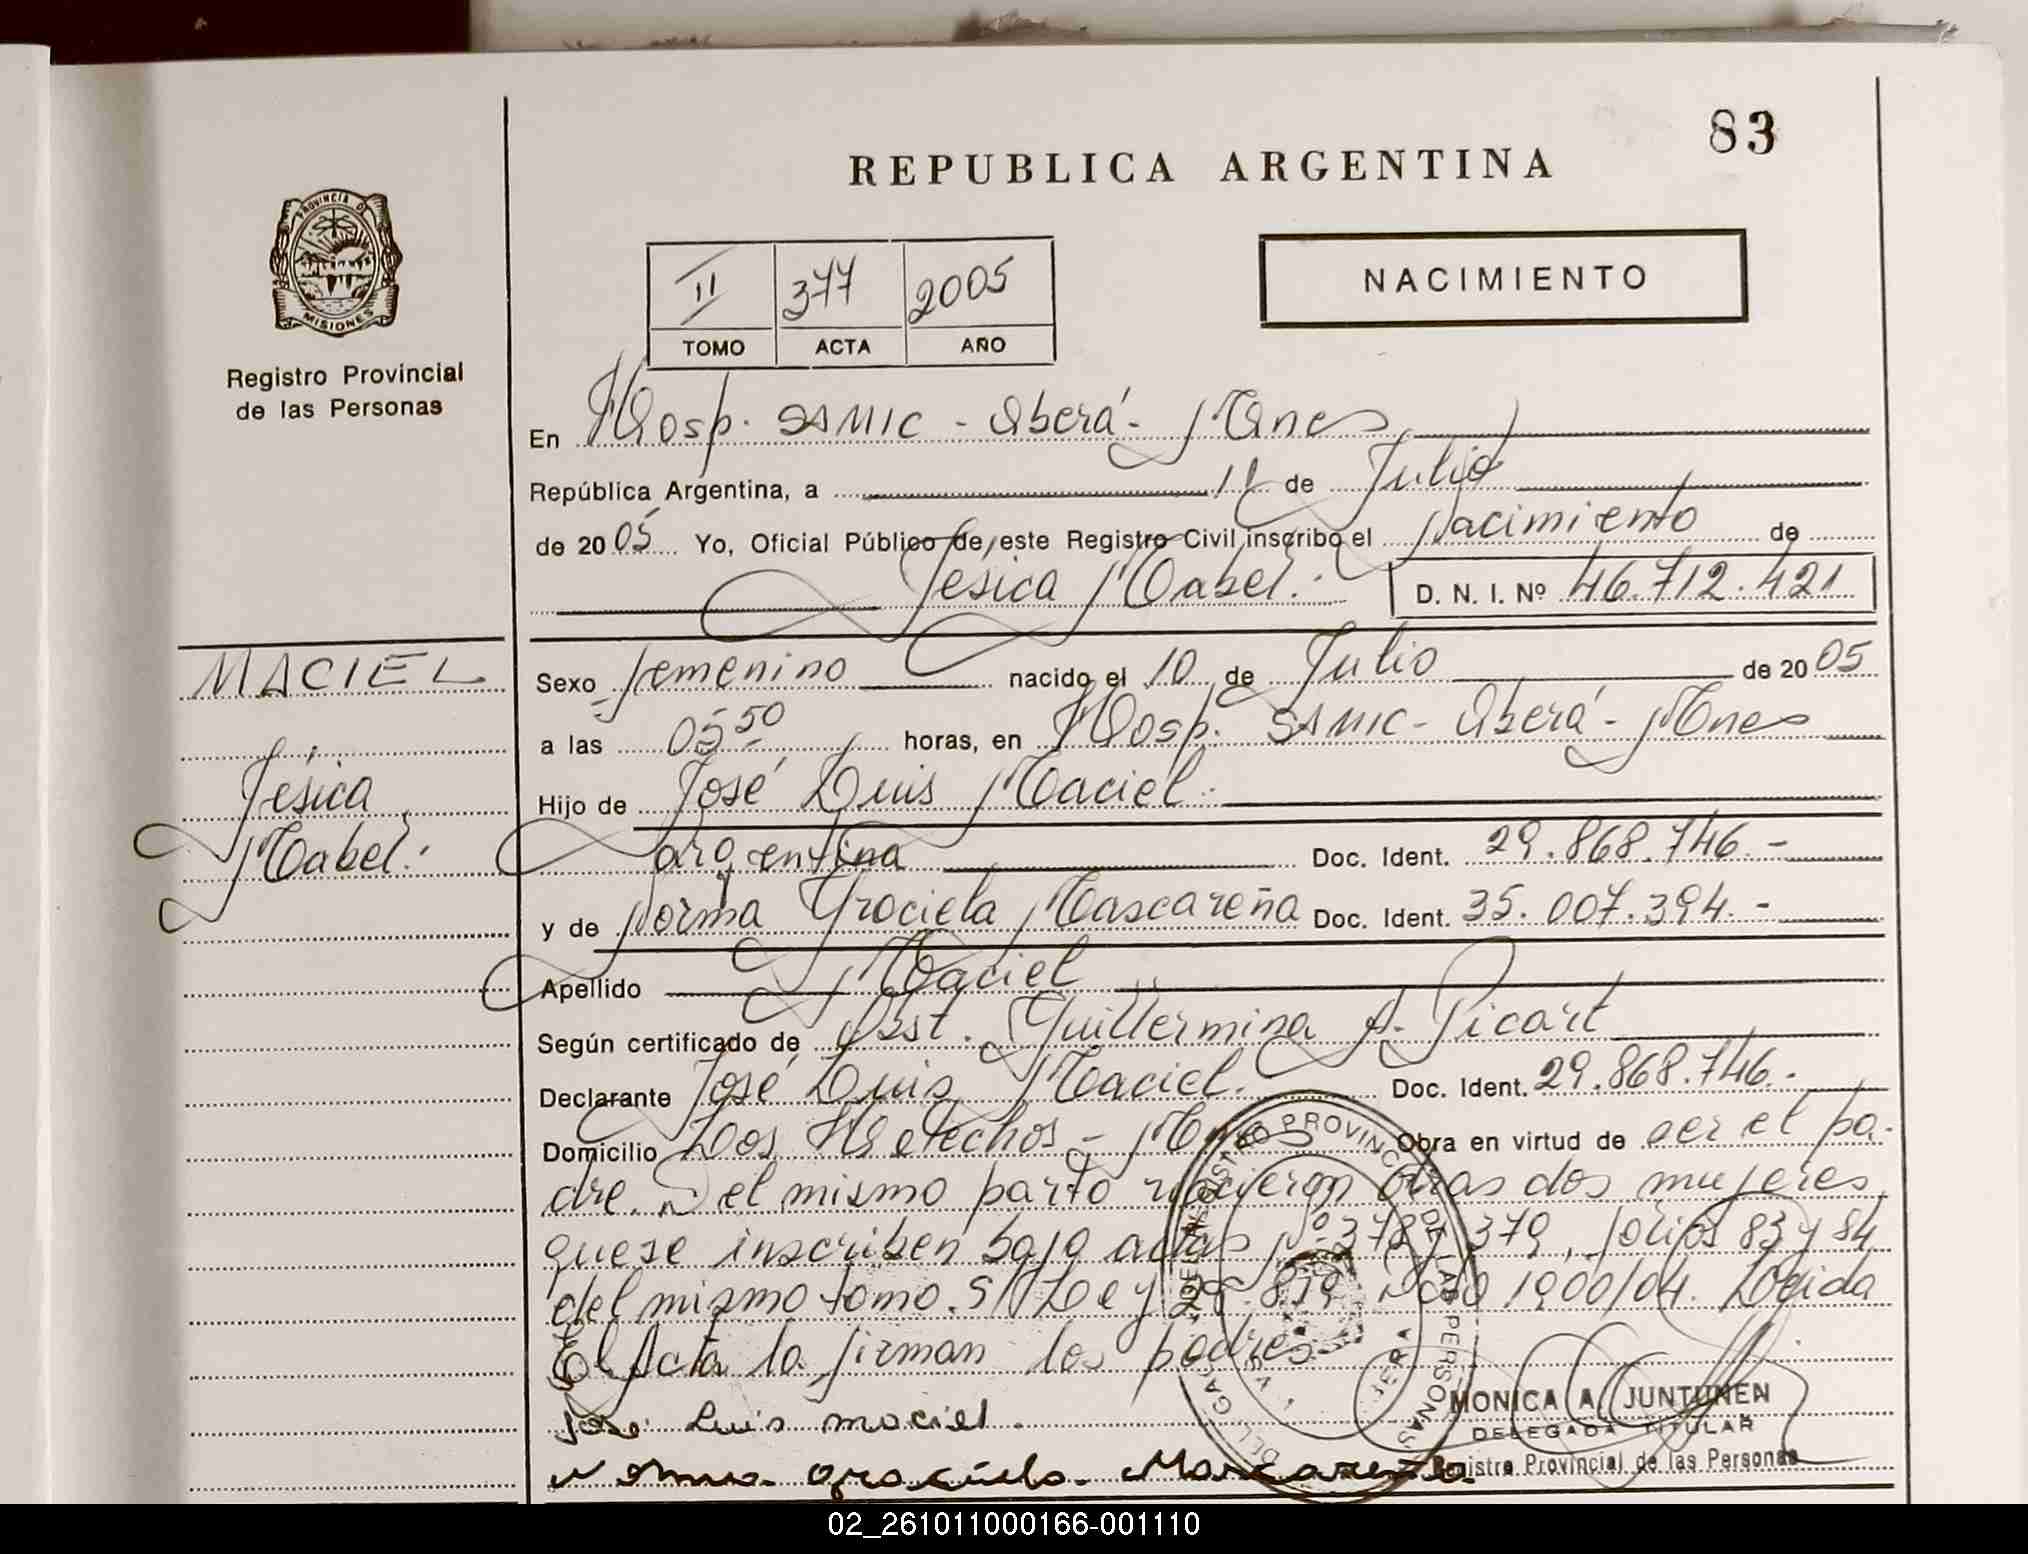 83
REPUBLICA ARGENTINA
PROVINCIA DE
MISIONES
Registro Provincial
de las Personas
II 377 2005
TOMO ACTA AÑO
NACIMIENTO
En Hosp. SAMIC - Oberá - Mnes
República Argentina, a 11 de Julio
de 2005 Yo, Oficial Público de este Registro Civil inscribo el Nacimiento de
Jésica Mabel. D. N. I. Nº 46.712.421
MACIEL
Jésica
Mabel.
Sexo femenino nacido el 10 de Julio de 2005
a las 05 50 horas, en Hosp. SAMIC - Oberá - Mnes
Hijo de José Luis Maciel.
argentina Doc. Ident. 29.868.746.-
y de Norma Graciela Mascareña Doc. Ident. 35.007.394.-
Apellido Maciel
Según certificado de Obst. Guillermina A. Picart
Declarante José Luis Maciel. Doc. Ident. 29.868.746.-
Domicilio Los Helechos - Mnes Obra en virtud de ser el pa-
dre. Del mismo parto nacieron otras dos mujeres
que se inscriben bajo actas Nº 378 y 379, folios 83 y 84
del mismo tomo. S/ Ley 1900/04. Leída
El Acta la firman los padres
Jose Luis maciel.
Norma graciela Mascareña
MONICA A. JUNTUNEN
DELEGADA TITULAR
Registro Provincial de las Personas
02_261011000166-001110